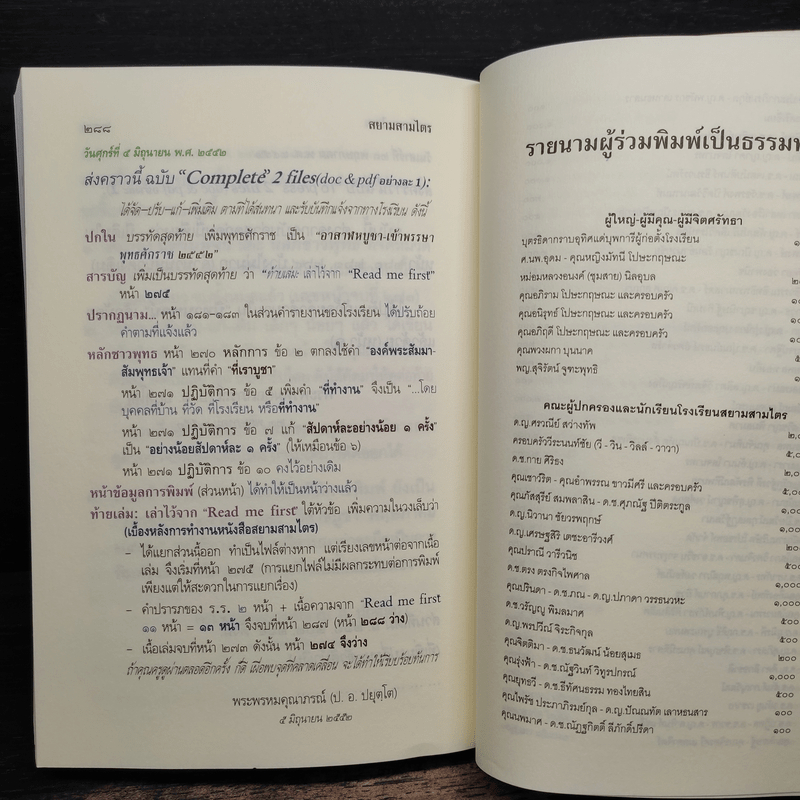 ๒๘๘
สยามสามไตร
วันศุกร์ที่ ๕ มิถุนายน พ.ศ. ๒๕๕๒
ส่งคราวนี้ ฉบับ “Complete” 2 files (doc & pdf อย่างละ 1):
ได้จัด-ปรับ-แก้-เพิ่มเติม ตามที่ได้สนทนา และรับบันทึกแจ้งจากทางโรงเรียน ดังนี้
ปกใน บรรทัดสุดท้าย เพิ่มพุทธศักราช เป็น “อาสาฬหบูชา-เข้าพรรษา
พุทธศักราช ๒๕๕๒”
สารบัญ เพิ่มเป็นบรรทัดสุดท้าย ว่า “ท้ายเล่ม: เล่าไว้จาก “Read me first”
หน้า ๒๗๕
ปรากฏนาม... หน้า ๑๘๑-๑๘๓ ในส่วนคำรายงานของโรงเรียน ได้ปรับถ้อย
คำตามที่แจ้งแล้ว
หลักชาวพุทธ หน้า ๒๗๐ หลักการ ข้อ ๒ ตกลงใช้คำ “องค์พระสัมมา-
สัมพุทธเจ้า” แทนที่คำ “ที่เราบูชา”
หน้า ๒๗๑ ปฏิบัติการ ข้อ ๕ เพิ่มคำ “ที่ทำงาน” จึงเป็น “...โดย
บุคคลที่บ้าน ที่วัด ที่โรงเรียน หรือที่ทำงาน”
หน้า ๒๗๑ ปฏิบัติการ ข้อ ๗ แก้ “สัปดาห์ละอย่างน้อย ๑ ครั้ง”
เป็น “อย่างน้อยสัปดาห์ละ ๑ ครั้ง” (ให้เหมือนข้อ ๖)
หน้า ๒๗๑ ปฏิบัติการ ข้อ ๑๐ คงไว้อย่างเดิม
หน้าข้อมูลการพิมพ์ (ส่วนหน้า) ได้ทำให้เป็นหน้าว่างแล้ว
ท้ายเล่ม: เล่าไว้จาก “Read me first” ใต้หัวข้อ เพิ่มความในวงเล็บว่า
(เบื้องหลังการทำงานหนังสือสยามสามไตร)
– ได้แยกส่วนนี้ออก ทำเป็นไฟล์ต่างหาก แต่เรียงเลขหน้าต่อจากเนื้อ
เล่ม จึงเริ่มที่หน้า ๒๗๕ (การแยกไฟล์ไม่มีผลกระทบต่อการพิมพ์
เพียงแต่ให้สะดวกในการแยกเรื่อง)
– คำปรารภของ ร.ร. ๒ หน้า + เนื้อความจาก “Read me first
๑๑ หน้า = ๑๓ หน้า จึงจบที่หน้า ๒๘๗ (หน้า ๒๘๘ ว่าง)
– เนื้อเล่มจบที่หน้า ๒๗๓ ดังนั้น หน้า ๒๗๔ จึงว่าง
ถ้าคุณครูดูผ่านตลอดอีกครั้ง ก็ดี เผื่อพบจุดที่คลาดเคลื่อน จะได้ทำให้เรียบร้อยทันการ
พระพรหมคุณาภรณ์ (ป. อ. ปยุตฺโต)
๕ มิถุนายน ๒๕๕๒
รายนามผู้ร่วมพิมพ์เป็นธรรมท
ผู้ใหญ่-ผู้มีคุณ-ผู้มีจิตศรัทธา
บุตรธิดากราบอุทิศแด่บุพการีผู้ก่อตั้งโรงเรียน
ศ.นพ.อุดม - คุณหญิงมัทนี โปษะกฤษณะ
หม่อมหลวงอนงค์ (ชุมสาย) นิลอุบล
คุณอภิราม โปษะกฤษณะ และครอบครัว
คุณอนิรุทธ์ โปษะกฤษณะ และครอบครัว
คุณอภิฤดี โปษะกฤษณะ และครอบครัว
คุณพวงผกา บุนนาค
พญ.สุจิรัตน์ จูฑะพุทธิ
คณะผู้ปกครองและนักเรียนโรงเรียนสยามสามไตร
ด.ญ.ศรวณีย์ สว่างทัพ
ครอบครัววีระนนท์ชัย (วี - วิน - วิลล์ - วาวา)
ด.ช.กาย ศิริธง
คุณเชาวริต - คุณอำพรรณ ขาวมีศรี และครอบครัว
คุณภัสสุรีย์ สมพลาสิน - ด.ช.ศุภณัฐ ปีติตระกูล
ด.ญ.นิวานา ชัยวรพฤกษ์
ด.ญ.เศรษฐสิริ เตชะอารีวงศ์
คุณปราณี วารีวนิช
ด.ช.ตรง ตรงกิจไพศาล ๕๐๐
คุณปรินดา - ด.ช.ภณ - ด.ญ.ปภาดา วรรธนวหะ ๑,๐๐๐
ด.ช.วรัญญู พิมลมาศ
ด.ญ.พรปวีณ์ จิระกิจกุล ๕๐๐
คุณจิตติมา - ด.ช.ธนวัฒน์ น้อยสุเมธ ๒๐๐
คุณรุ่งฟ้า - ด.ช.ณัฐวินท์ วิทูรปกรณ์ ๑,๐๐๐
คุณยุทธวี - ด.ช.ธีทัศนธรรม ทองไทยสิน ๕๐๐
คุณไพรัช ประภาภิรมย์กุล - ด.ญ.ปัณณทัต เลาหธนสาร ๑๐๐
คุณนพมาศ - ด.ช.ณัฏฐกิตติ์ ลีภักดิ์ปรีดา ๑๐๐